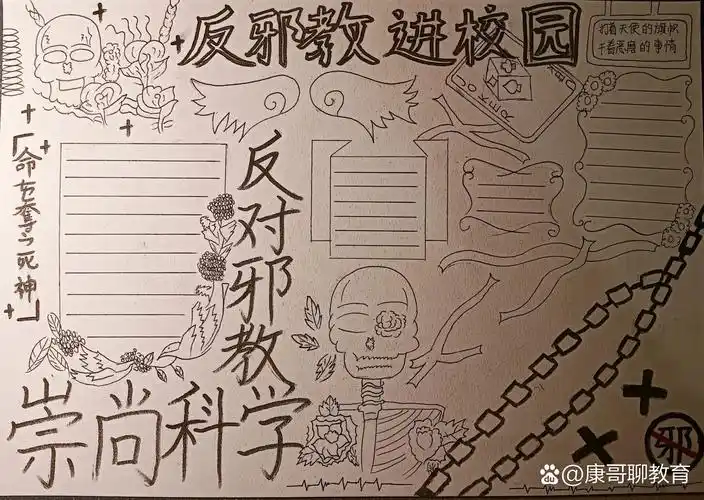 反邪教进校园
打着天使的旗帜
干着恶魔的事情
「命在奪之死神」
反对邪教
崇尚科学
JOKER
邪
@康哥聊教育